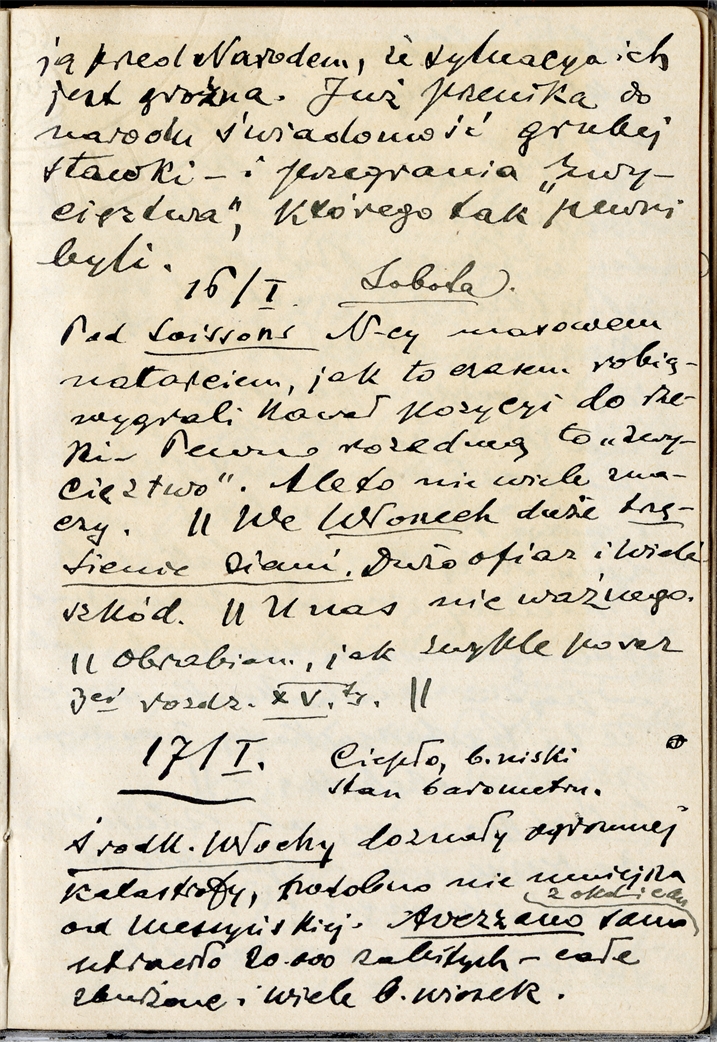 ją przed Narodem, iż sytuacya ich
jest groźna. Już przenika do
narodu świadomość grubej
stawki – i przegrania „zwy-
cięztwa”, którego tak pewni
byli.
16/I. Sobota.
Pod Soissons N-cy masowem
natarciem, jak to czasem robią –
wygrali kawał pozycyi do rze-
ki – Pewno rozedmą to „zwy-
cięztwo”. Ale to nie wiele zna-
czy. || We Włoszech duże trzę-
sienie ziemi. Dużo ofiar i wiele
szkód. || U nas nic ważnego.
|| Obrabiam, jak zwykle poraz
3ci rozdz. XV. ty. ||
17/I. Ciepło, b. niski
stan barometru.
Środk. Włochy doznały ogromnej
katastrofy, podobno nie mniejsza
z okolicą
od Messyńskiej. Avezzano sama
utraciło 20.000 zabitych – całe
zburzone i wiele b. wiosek.